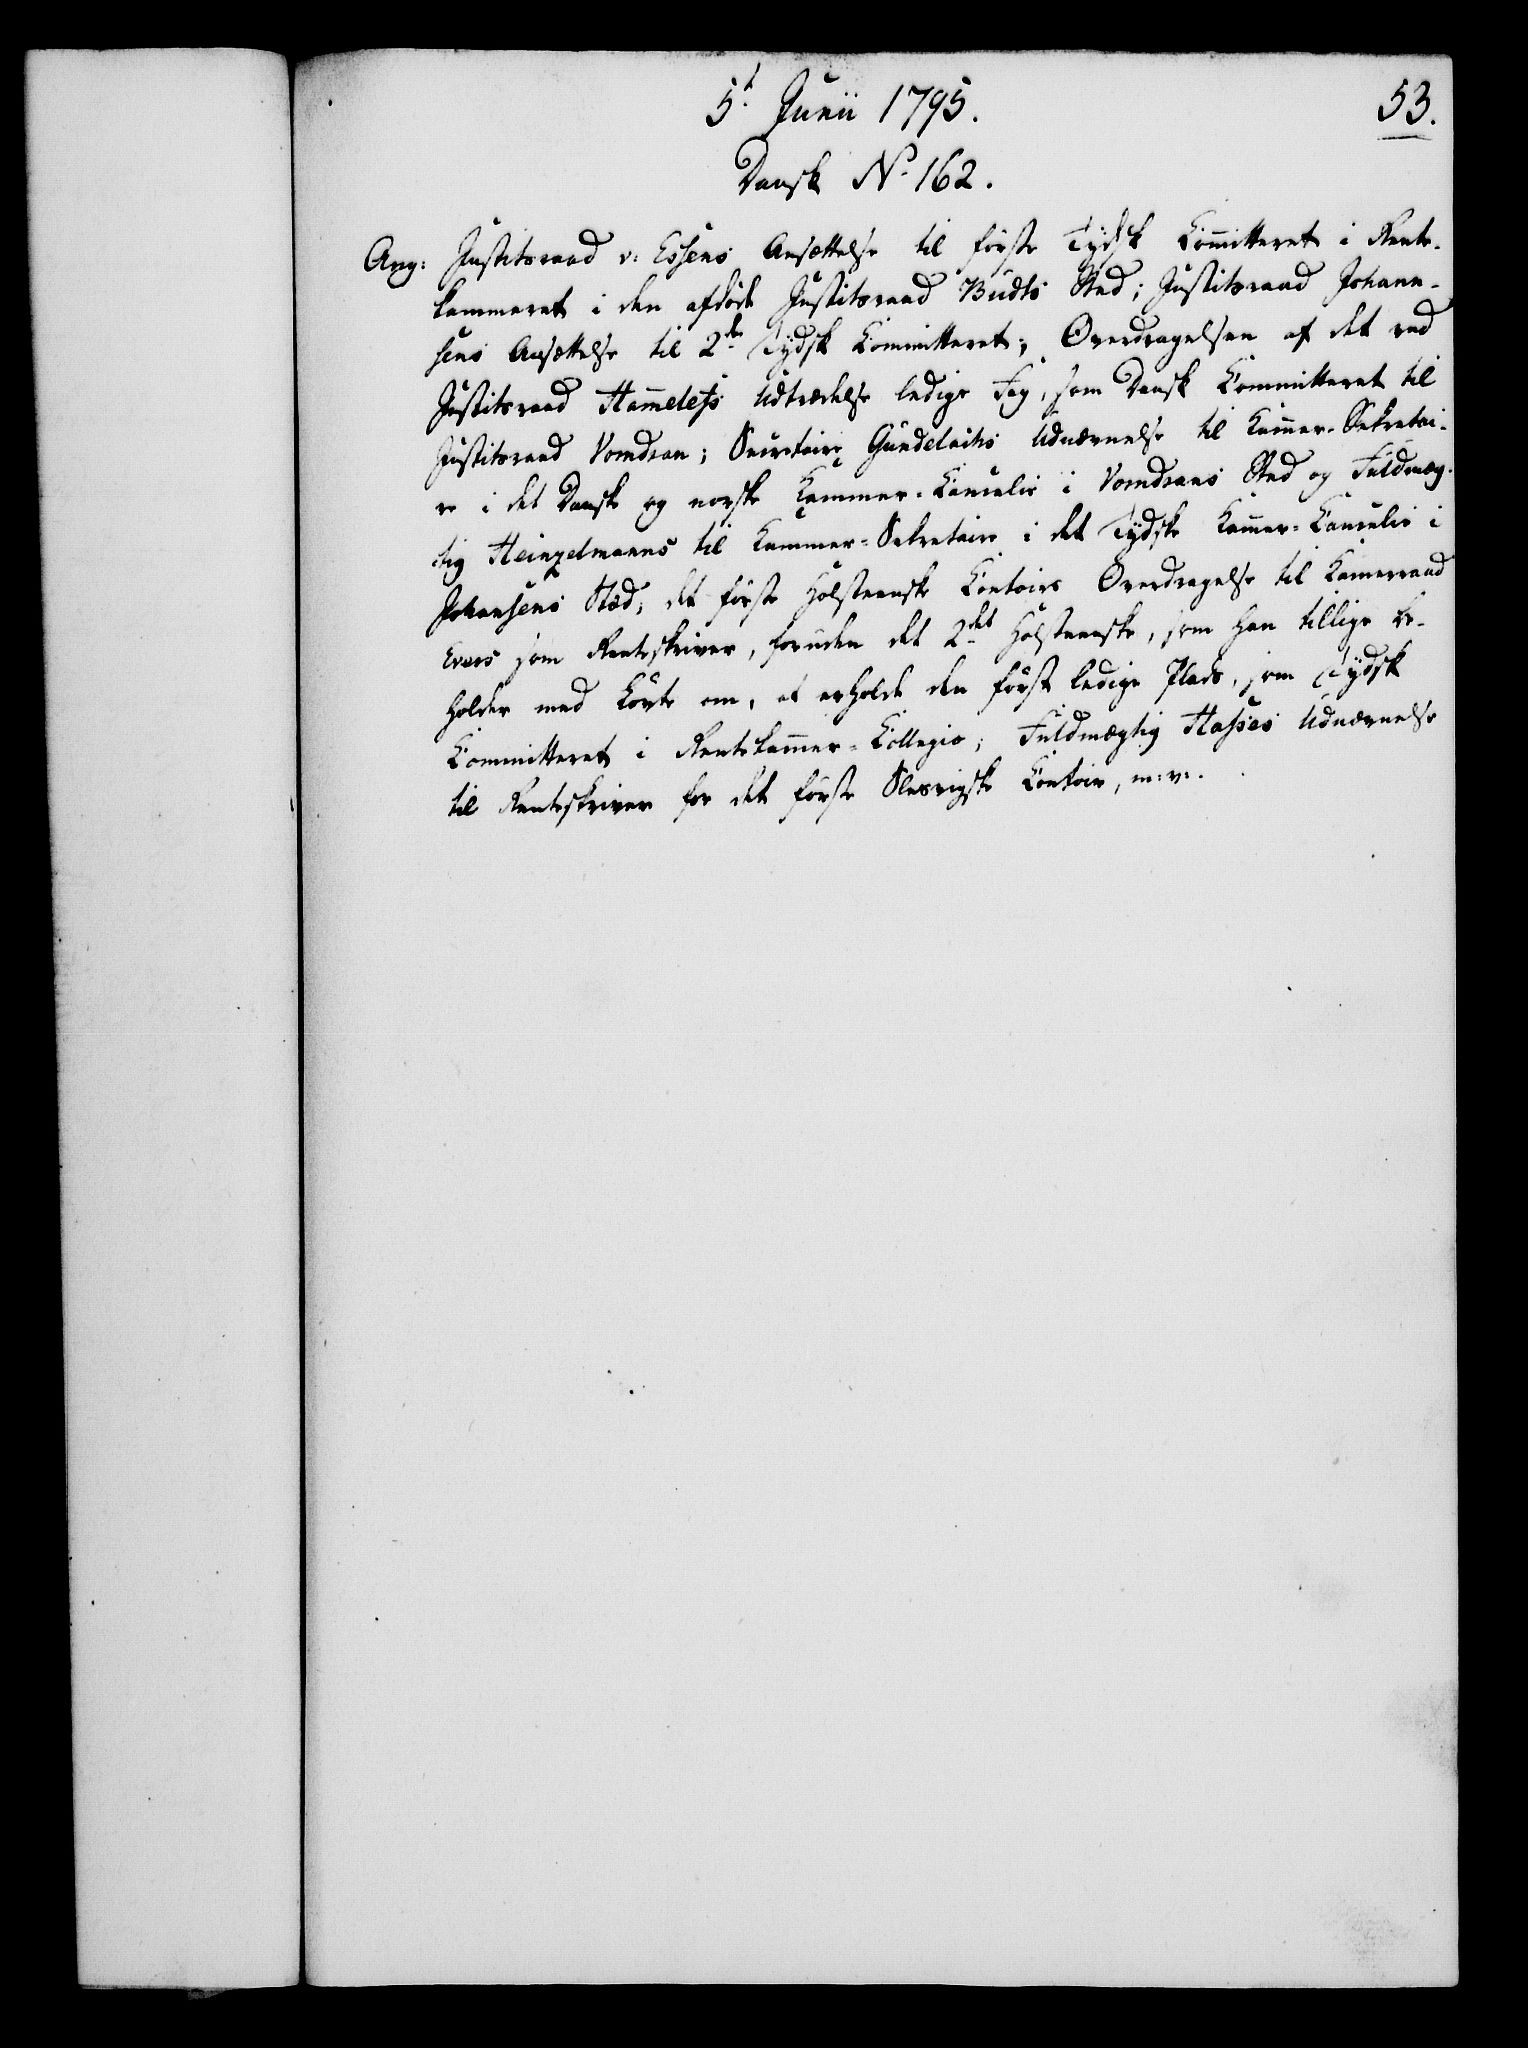 5t Junii 1795.
53.
Dansk No 162.
Ang: Justitsraad v: Essens Ansættelse til første Tydsk Committeret i Rente-
kammeret i den afdøde Justitsraad Budts Sted; Justitsraad Johann-
sens Ansættelse til 2den Tydsk Committeret; Overdragelsen af det ved
Justitsraad Hammeleffs Udtrædelse ledige Fag, som Dansk Committeret til
Justitsraad Vomdran; Secretaire Gundelachs Udnævnelse til Kammer-Sekretai-
re i det Danske og norske Kammer-Cancelie i Vomdrans Sted og Fuldmæg-
tig Heinzelmanns til Kammer-Sekretaire i det Tydske Kammer-Cancelie i
Johansens Sted; det første Holsteenske Contoirs Overdragelse til Kammerraad
Evers som Renteskriver, foruden det 2det Holsteenske, som han tillige be-
holder med Løvte om, at erholde den først ledige Plads, som Tydsk
Committeret i Rentekammer-Collegio; Fuldmægtig Hasses Udnævnelse
til Renteskriver for det første Slesvigske Contoir, m: v:.